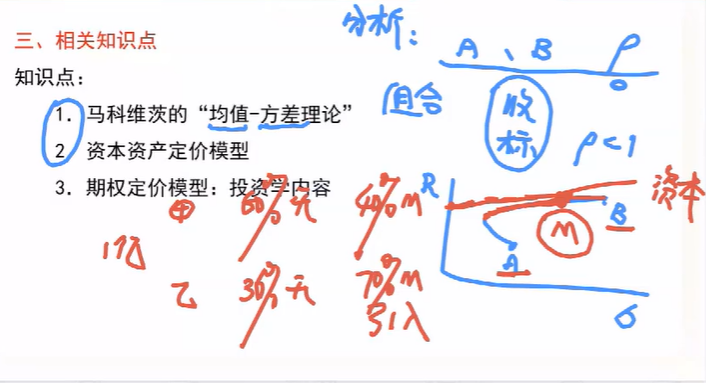 三、相关知识点
知识点：
1. 马科维茨的“均值-方差理论”
2. 资本资产定价模型
3. 期权定价模型：投资学内容
分析：
A、B ρ
0
组合 收
标
ρ<1
R
资本
B
M
A
σ
甲 60% 无 40% M
1亿
乙 30% 无 70% M
引入